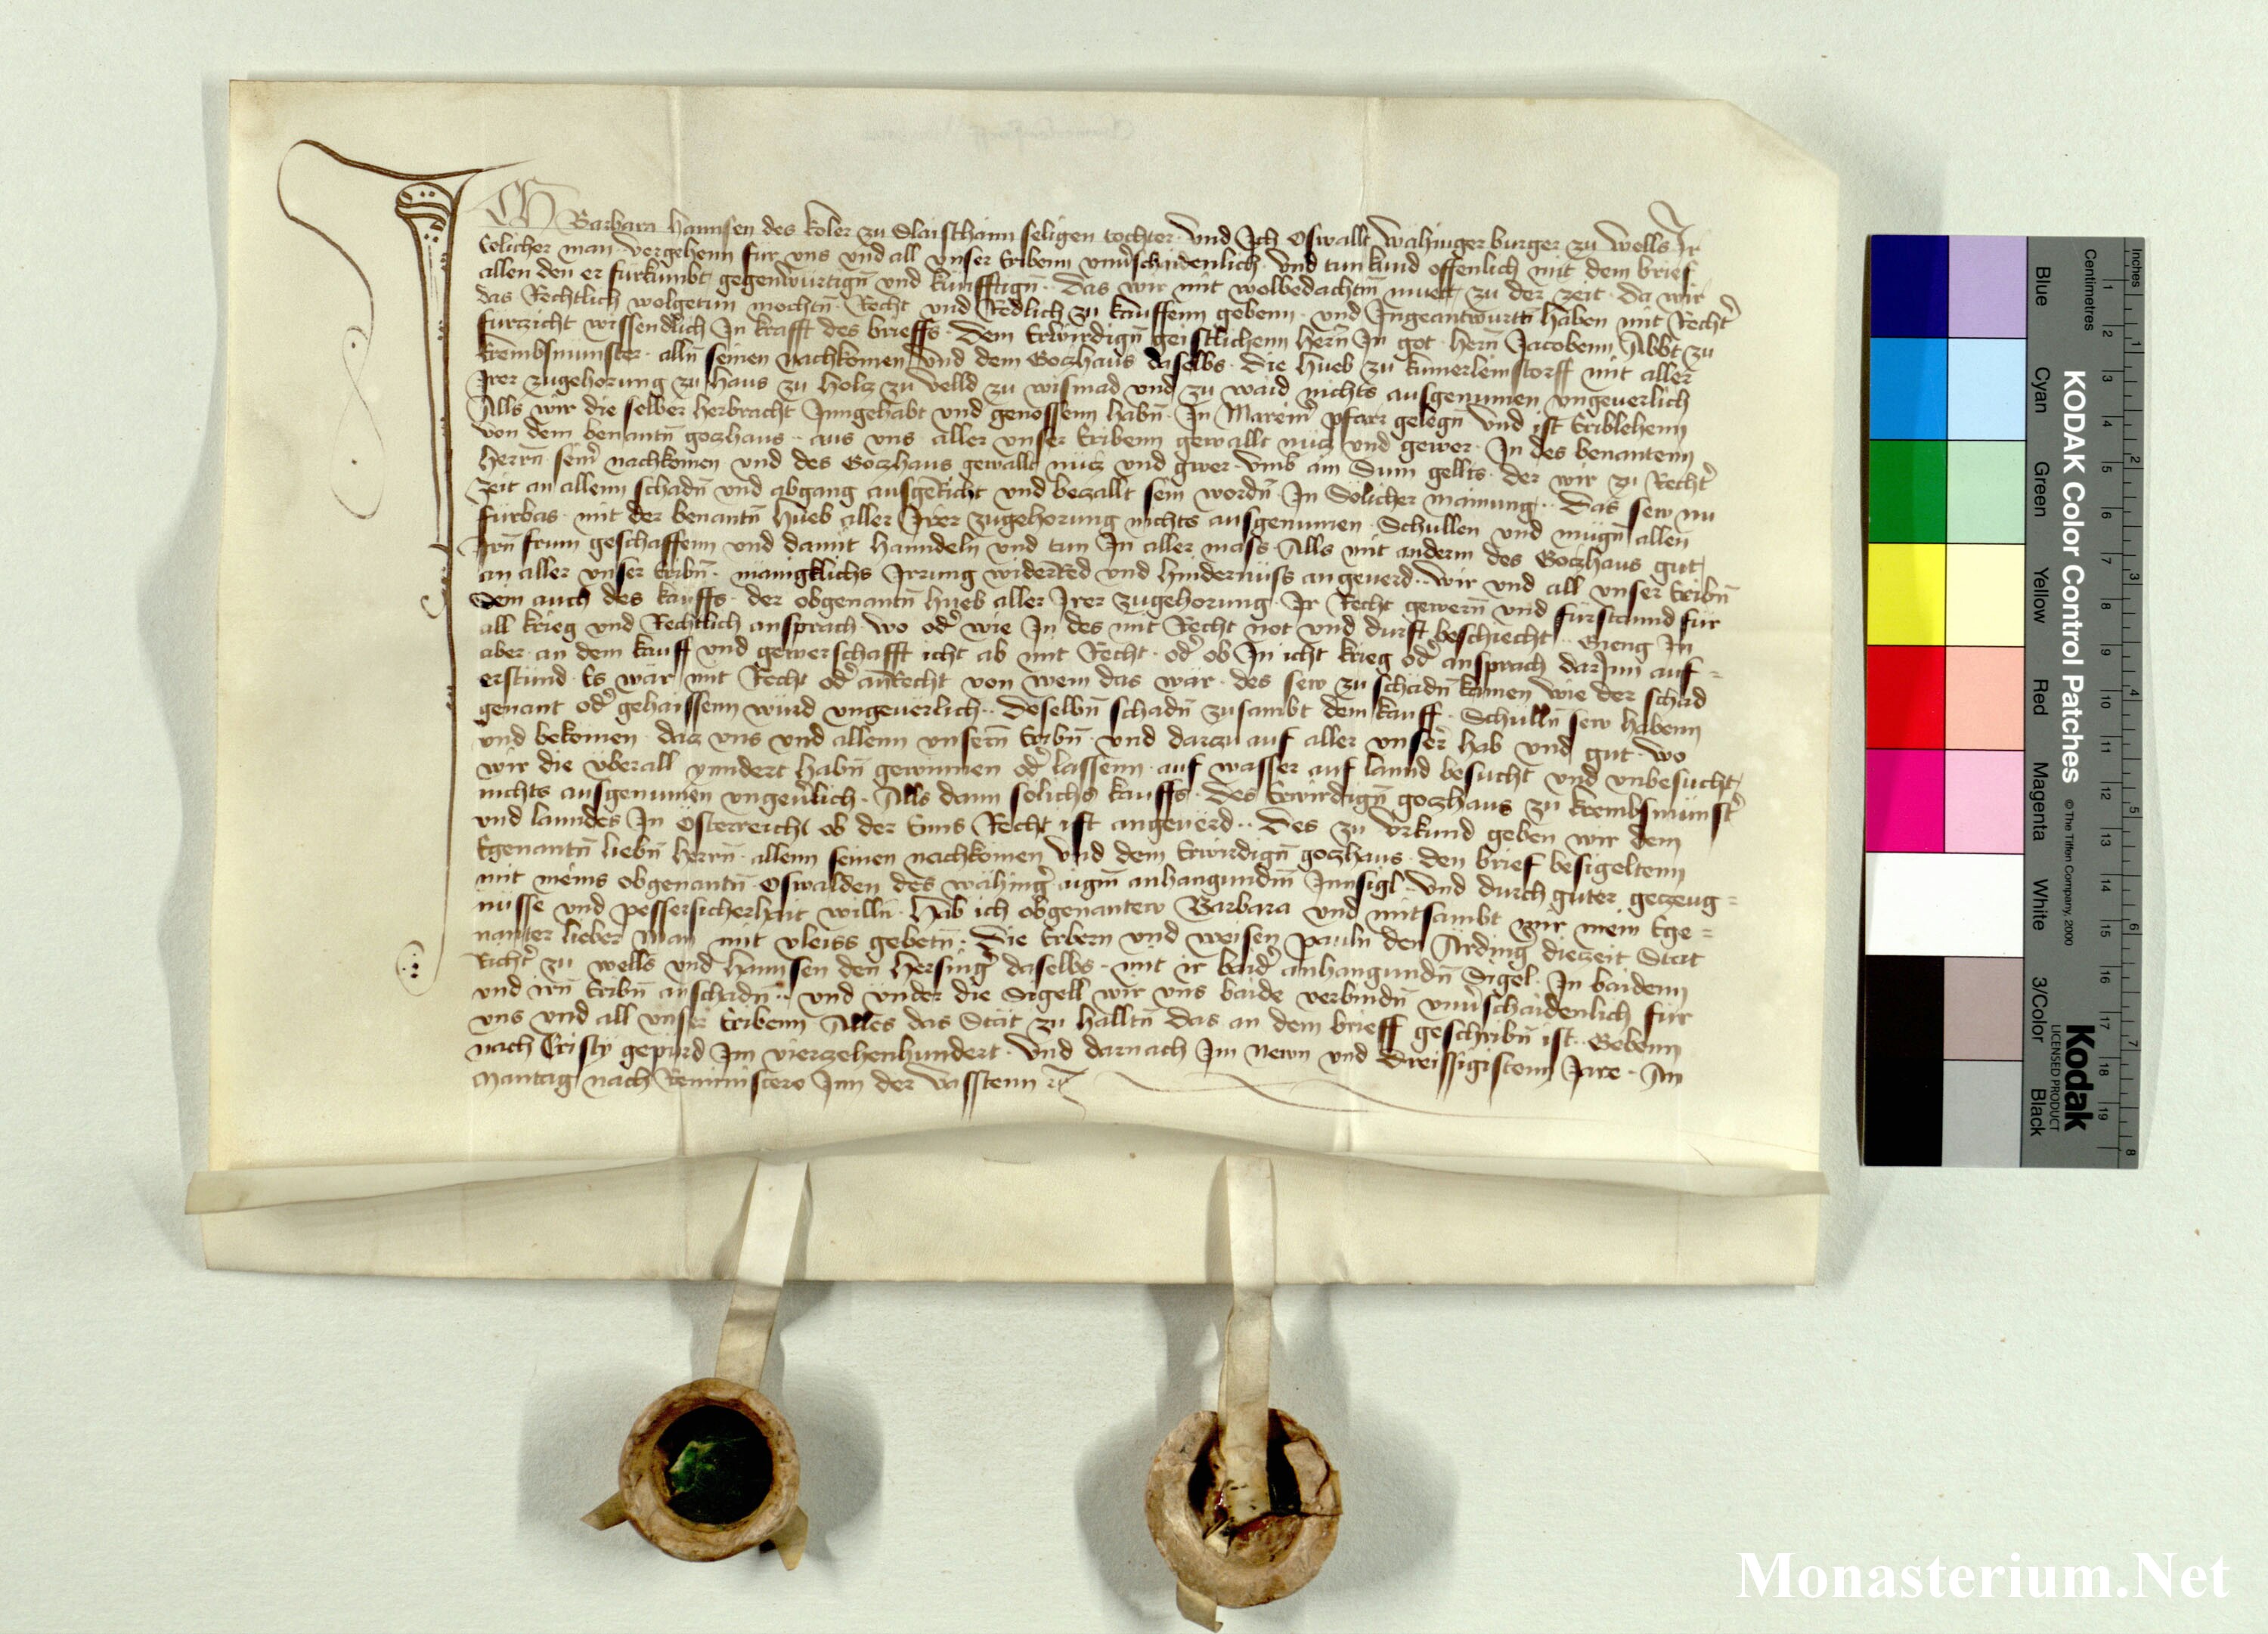 ICH Barbara hannsen des koler zu Slaisthaim seligen tochter und Ich Oswallt Wahinger burger zu Wells Ir
Eelicher man vergehenn für uns und all unser Eribenn unuerschaidenlich und tun kund offenlich mit dem brief
allen den er fürkumbt gegenwürtign̄ und künfftign̄ Das wir mit wolbedachtm̄ muett zu der zeit da wir
das Rechtlich wolgetun mochtn̄ Recht und Redlich zu kauffenn gebenn und Ingeantwurtt haben mit Recht̓
fürzicht wissendlich In krafft des brieffs Dem Erwirdign̄ geistlichenn herr̄n In got herr̄n Jacobenn Abbt zu
krembsmunster alln̄ seinen nachkomen und dem Goczhaus daselbs die hueb zu kumerleinstorff mit aller
Irer zugehorung zu haus zu holcz zu velld zu wismad und zu waid nichts ausgenumen ungeuerlich
Alls wir die selber herbracht Inngehabt und genossenn habn̄ In Mareinn̓ pfarr gelegn̄ und ist Eriblehenn
von dem benantn̄ goczhaus aus uns aller unser Eribenn gewallt nucz und gewer In des benantenn
herrn̄ sein̓ nachkomen und des Goczhaus gewallt nücz und gwer umb ain Sum gellts der wir zu Recht̓
zeit an allenn schadn̄ und abgang ausgeRicht und bezallt sein wordn̄ In Sölicher mainung Das sew nu
fürbas mit der benantn̄ hueb aller Irer zugehorung nichts ausgenumen Schullen und mügn̄ allen̄
Irn̄ frum geschaffenn und damit hanndeln und tun In aller mass Alls mit anderm des Goczhaus gut
an aller unser Eribn̄ mänigklichs Irrung widerRed und hindernüss angeuerd wir und all unser Eribn̄
Sein auch des kauffs der obgenantn̄ hueb aller Irer zugehorung Ir Recht gewern̄ und fürstannd für
all krieg und Rechtlich ansprach wo od̓ wie In des mit Recht not und durft beschiecht Gieng In
aber an dem kauff und gewerschafft icht ab mit Recht od̓ ob In icht krieg od̓ ansprach darInn auf =
erstünd Es wär mit Recht od̓ anRecht von wem das wär des sew zu schadn̄ kamen wie der schad
genant od̓ gehaissenn würd ungeuerlich Deselbn̄ schadn̄ zusambt dem kauff Schulln̄ sew habenn
und bekomen dacz uns und allenn unsern̄ Eribn̄ und darczu auf aller unser̓ hab und gut wo
wir die überall ynndert habn̄ gewinnen od̓ lassenn auf wasser auf lannd besucht und unbesucht
nichts ausgenumen ungeu̓lich Alls dann solichs kauffs des Erwirdign̄ goczhaus zu krembsmünst̓
und lanndes In Osterreich ob der Enns Recht ist angeuerd Des zu urkund geben wir dem
Egenantn̄ liebn̄ herrn̄ allenn seinen nachkomen und dem Erwirdign̄ goczhaus den brief besigeltenn
mit meins obgenantn̄ Oswalden des wähing̓ aigm̄ anhangundm̄ Innsigl und durch guter geczeug =
nüsse und pessersicherhait willn̄ Hab ich obgenantew Barbara und mitsambt mir mein Ege =
nanter lieber man mit vleiss gebetn̄ Die Erbern und weisen pauln den Ärding̓ diezeit Stat
Richt̓ zu wells und hannsen den hersing̓ daselbs mit ir baid̓ anhangundn̄ Sigel In baidenn
und irn̄ Eribn̄ anschadn̄ und under die Sigell wir uns baide verbindn̄ unu̓schaidenlich für
uns und all unser Eribenn Alles das Stät zu halltn̄ das an dem brieff geschribn̄ ist Gebenn
nach Cristi gepurd Im vierczehenhundert und darnach Im newn und dreissigistenn Jare An
Mantag nach Reminiscere Inn der vasstenn
KODAK Color Control Patches
© The Tiffen Company, 2000
Kodak
LICENSED PRODUCT
Inches
Centimetres
Blue
Cyan
Green
Yellow
Red
Magenta
White
3/Color
Black
1 2 3 4 5 6 7 8 9 10 11 12 13 14 15 16 17 18 19
1 2 3 4 5 6 7 8
Monasterium.Net